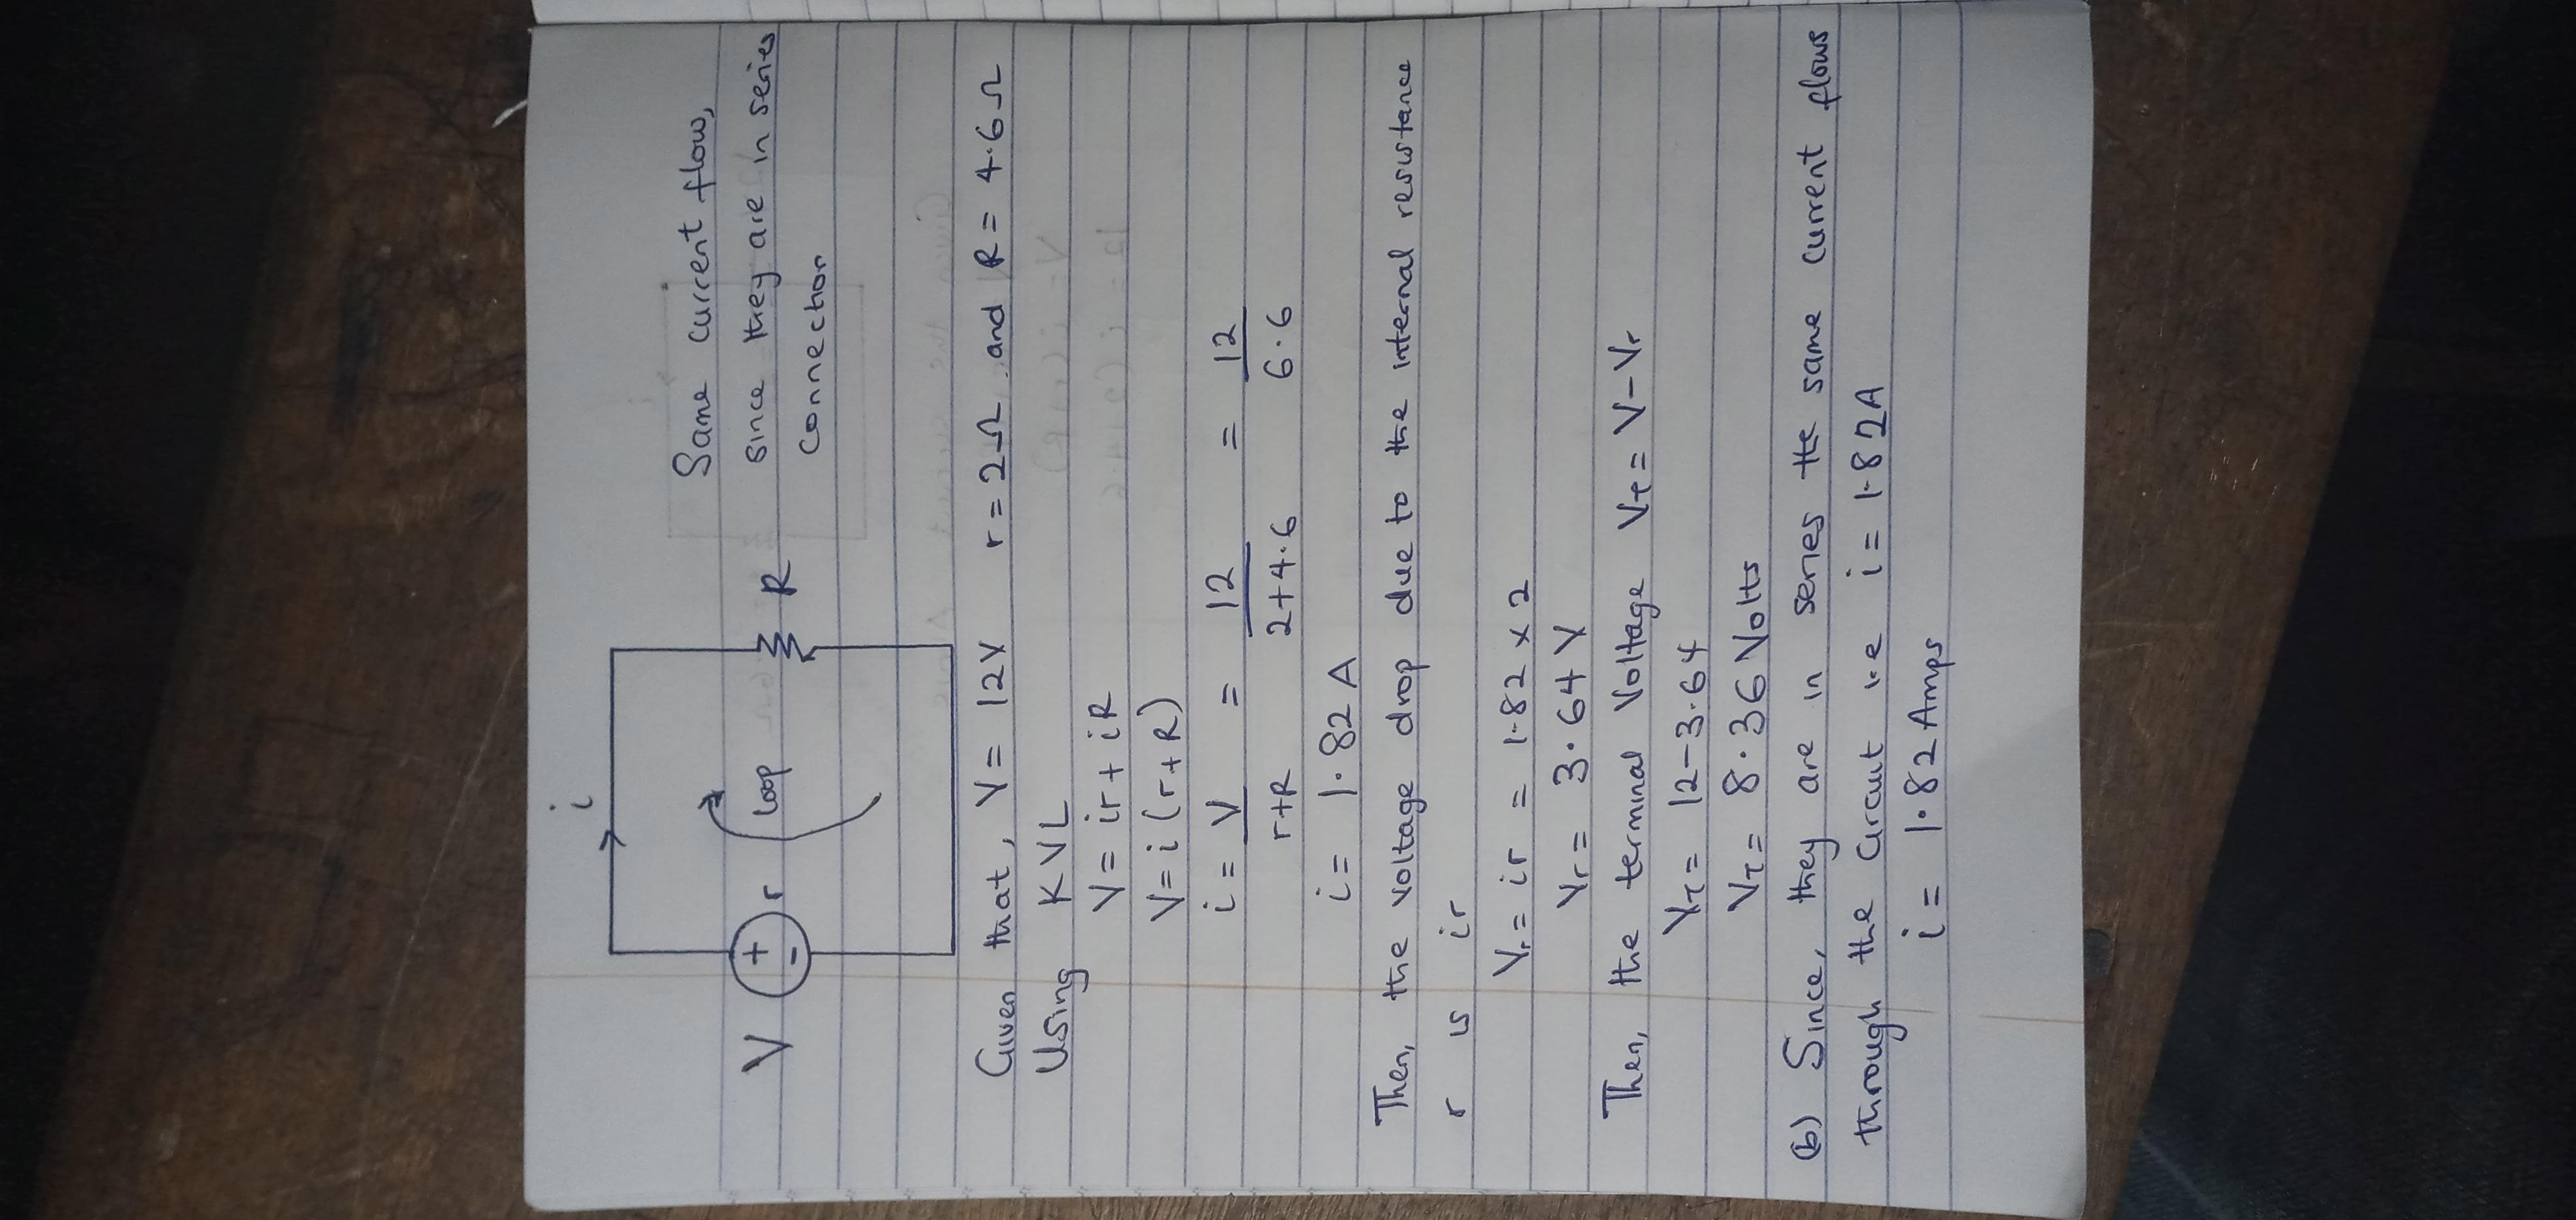 i
Same current flow,
V + - r loop R since they are in series
connection
Given that, V = 12V r = 2Ω and R = 4.6Ω
Using KVL
V = ir + iR
V = i(r+R)
i = V/r+R = 12/2+4.6 = 12/6.6
i = 1.82A
Then, the voltage drop due to the internal resistance
r is ir
Vr = ir = 1.82 x 2
Vr = 3.64V
Then, the terminal Voltage VT = V - Vr
VT = 12-3.64
VT = 8.36 Volts
(b) Since, they are in series the same current flows
through the Circuit i.e i = 1.82A
i = 1.82 Amps